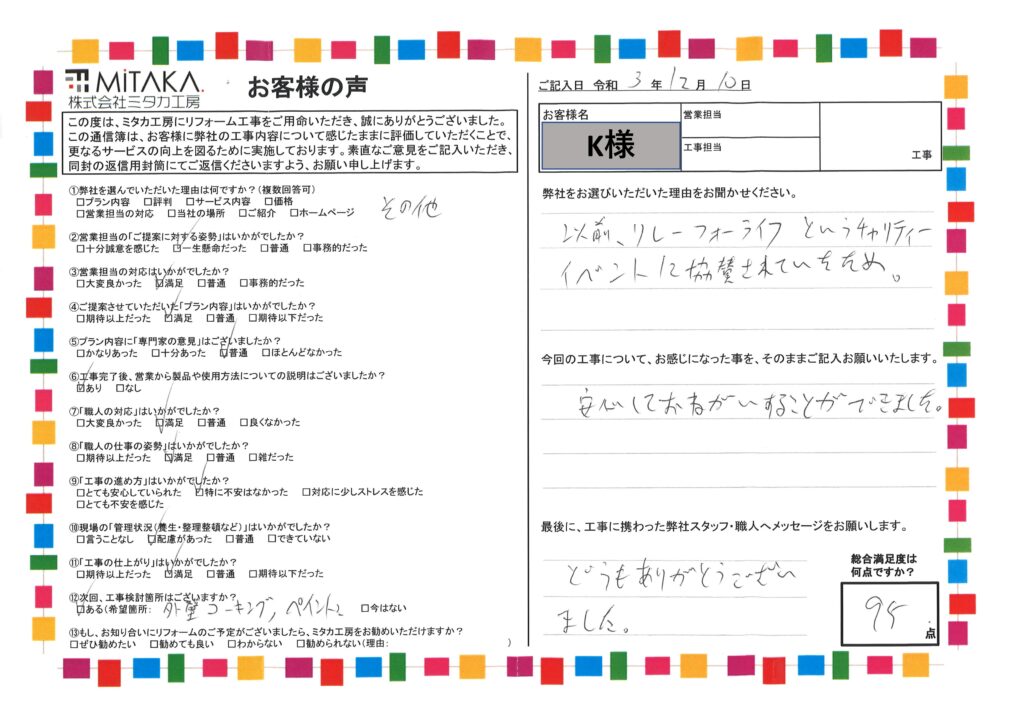 MiTAKA.
株式会社ミタカ工房
お客様の声
この度は、ミタカ工房にリフォーム工事をご用命いただき、誠にありがとうございました。
この通信簿は、お客様に弊社の工事内容について感じたままに評価していただくことで、
更なるサービスの向上を図るために実施しております。素直なご意見をご記入いただき、
同封の返信用封筒にてご返信くださいますよう、お願い申し上げます。
①弊社を選んでいただいた理由は何ですか？（複数回答可）
□プラン内容 □評判 □サービス内容 □価格
□営業担当の対応 □当社の場所 □ご紹介 □ホームページ
その他
②営業担当の「ご提案に対する姿勢」はいかがでしたか？
□十分誠意を感じた ☑一生懸命だった □普通 □事務的だった
③営業担当の対応はいかがでしたか？
□大変良かった ☑満足 □普通 □事務的だった
④ご提案させていただいた「プラン内容」はいかがでしたか？
□期待以上だった ☑満足 □普通 □期待以下だった
⑤プラン内容に「専門家の意見」はございましたか？
□かなりあった □十分あった ☑普通 □ほとんどなかった
⑥工事完了後、営業から製品や使用方法についての説明はございましたか？
☑あり □なし
⑦「職人の対応」はいかがでしたか？
□大変良かった ☑満足 □普通 □良くなかった
⑧「職人の仕事の姿勢」はいかがでしたか？
□期待以上だった ☑満足 □普通 □雑だった
⑨「工事の進め方」はいかがでしたか？
□とても安心していられた ☑特に不安はなかった □対応に少しストレスを感じた
□とても不安を感じた
⑩現場の「管理状況（養生・整理整頓など）」はいかがでしたか？
□言うことなし ☑配慮があった □普通 □できていない
⑪「工事の仕上がり」はいかがでしたか？
□期待以上だった ☑満足 □普通 □期待以下だった
⑫次回、工事検討箇所はございますか？
☑ある（希望箇所： 外壁コーキング，ペイント） □今はない
⑬もし、お知り合いにリフォームのご予定がございましたら、ミタカ工房をお勧めいただけますか？
□ぜひ勧めたい □勧めても良い □わからない □勧められない（理由： ）
ご記入日 令和 3 年 12 月 10 日
お客様名
K様
営業担当
工事担当
工事
弊社をお選びいただいた理由をお聞かせください。
以前、リレーフォーライフ というチャリティー
イベントに協賛されていたため。
今回の工事について、お感じになった事を、そのままご記入お願いいたします。
安心しておねがいすることができました。
最後に、工事に携わった弊社スタッフ・職人へメッセージをお願いします。
どうもありがとうござい
ました。
総合満足度は
何点ですか？
95
点